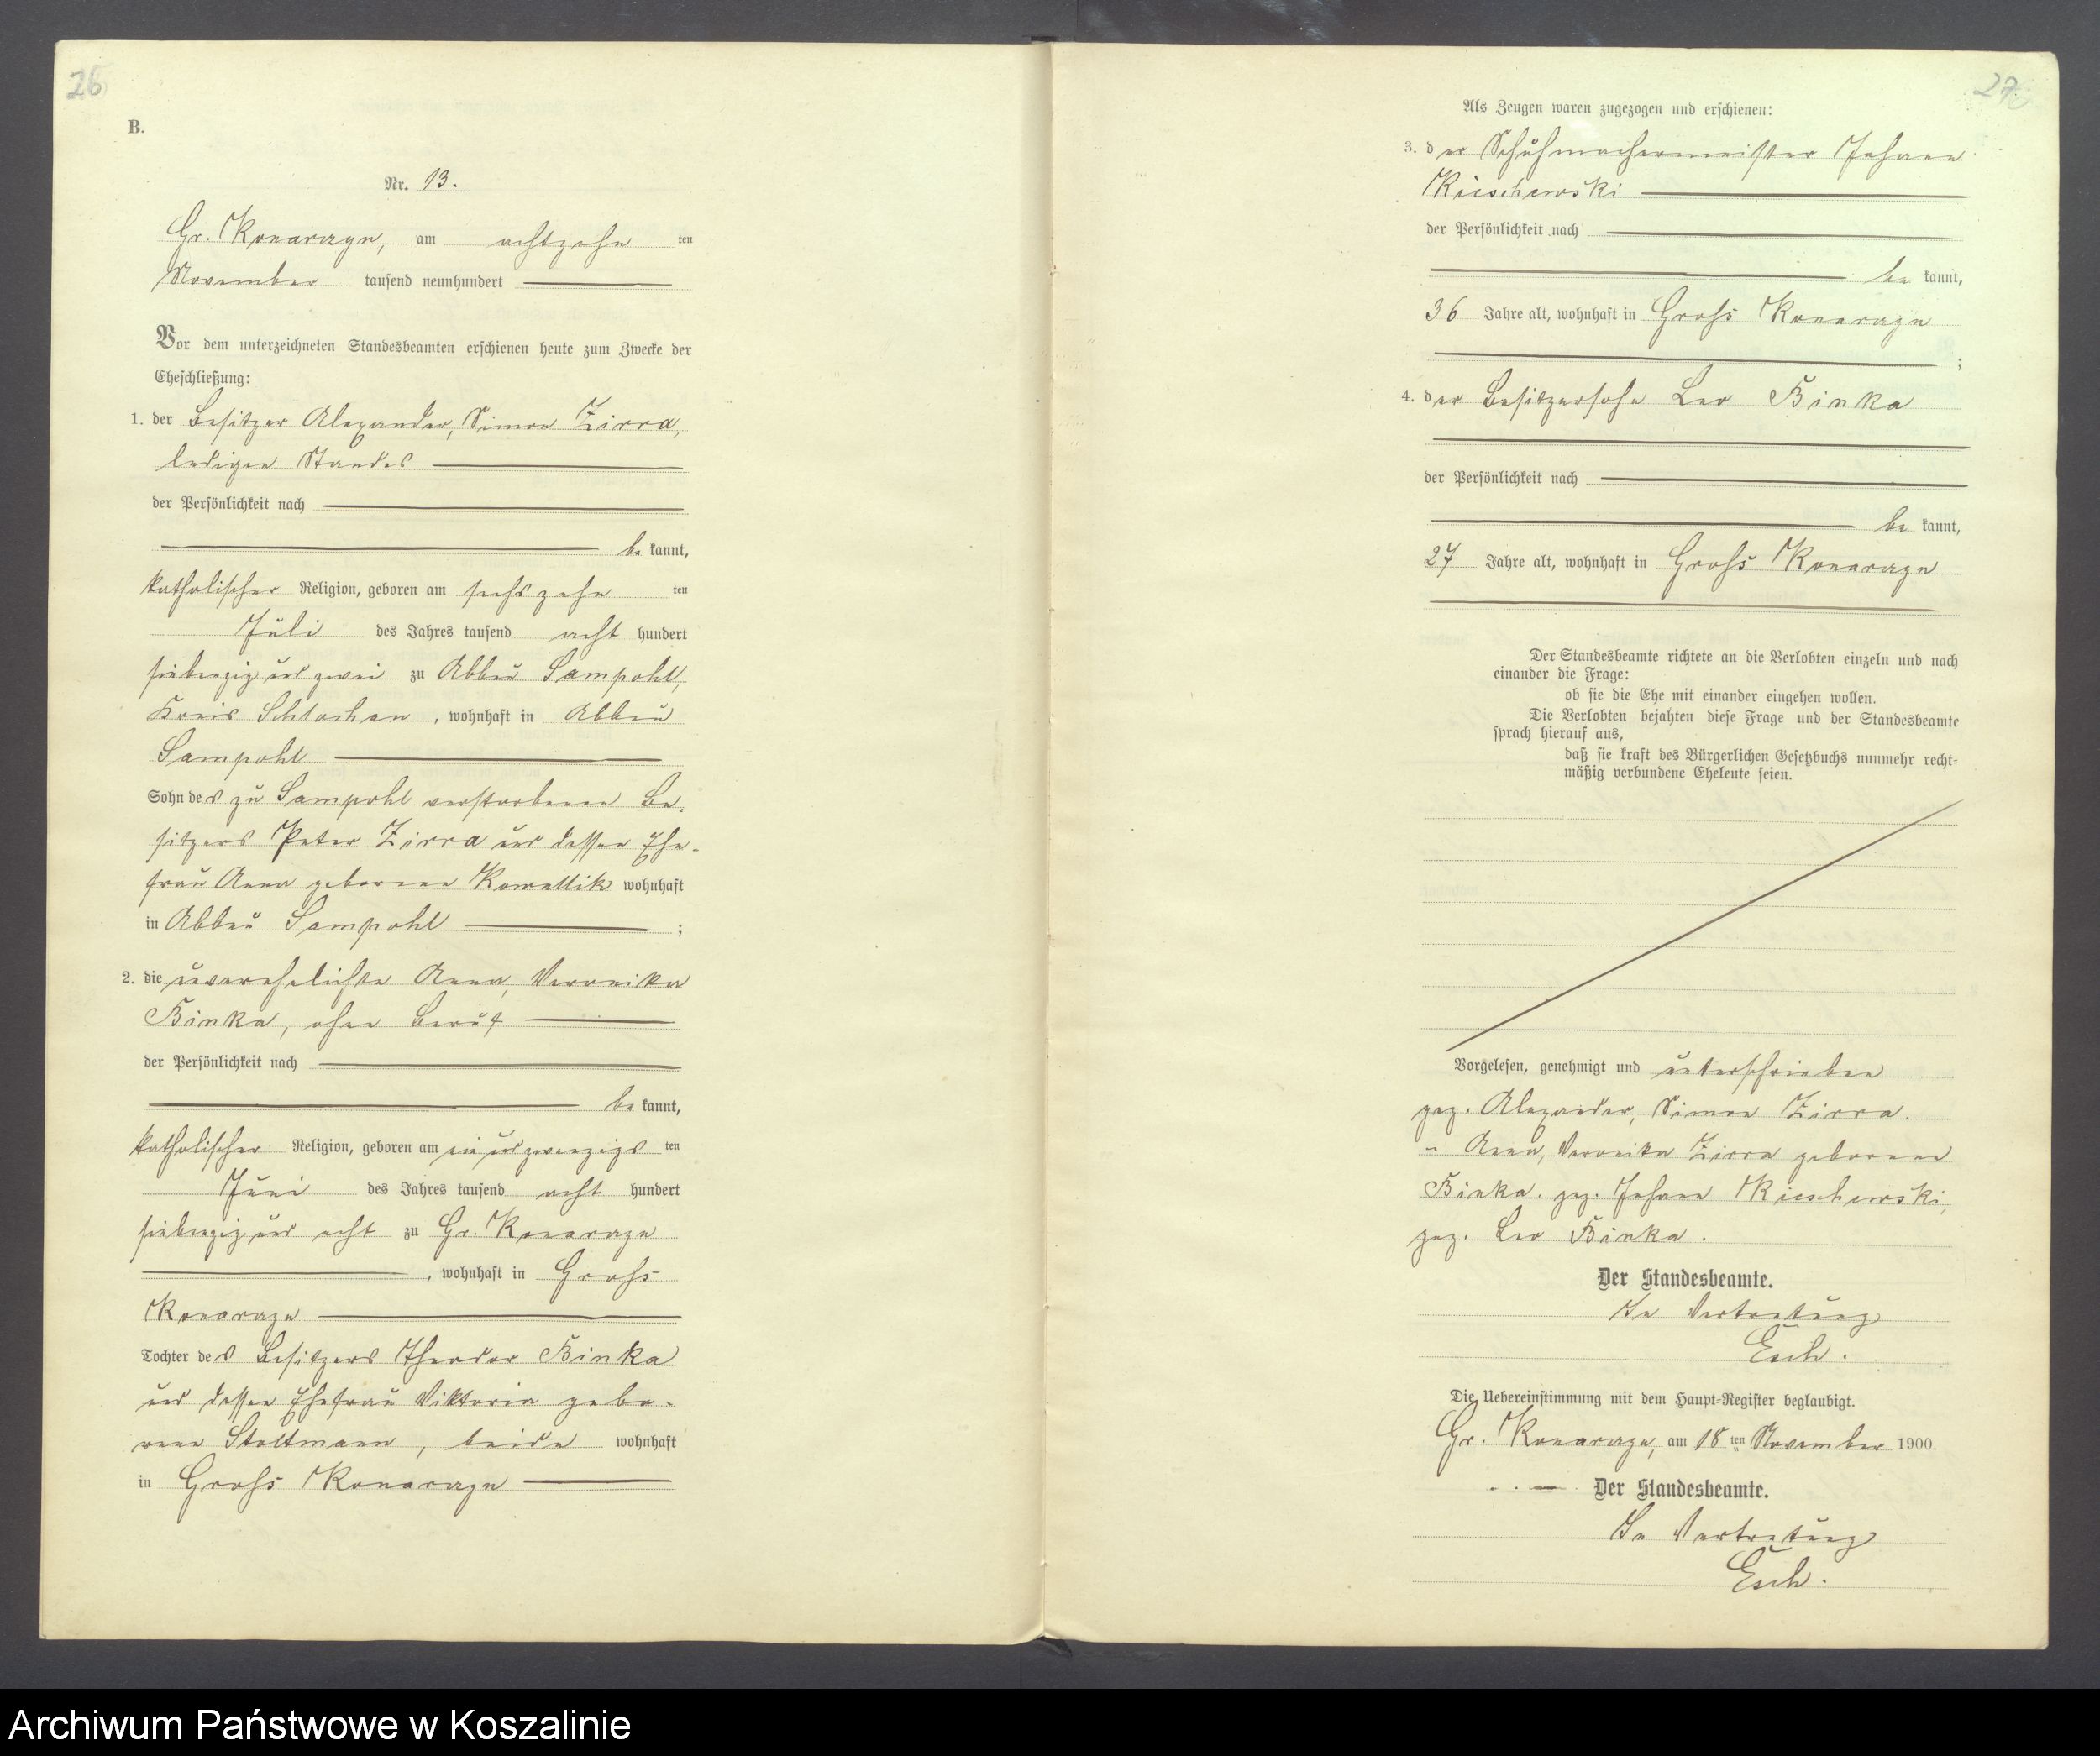 26
B.
Nr. 13.
Gr. Konarczyn, am achtzehn ten
November tausend neunhundert
Vor dem unterzeichneten Standesbeamten erschienen heute zum Zwecke der
Eheschließung:
1. der Besitzer Alexander, Simon Zirra,
ledigen Standes
der Persönlichkeit nach
be kannt,
katholischer Religion, geboren am sechszehn ten
Juli des Jahres tausend acht hundert
siebenzig und zwei zu Abbau Sampohl,
Kreis Schlochau, wohnhaft in Abbau
Sampohl
Sohn des zu Sampohl verstorbenen Be-
sitzers Peter Zirra und dessen Ehe-
frau Anna geborene Kowallik wohnhaft
in Abbau Sampohl ;
2. die unverehelichte Anna, Veronika
Binka, ohne Beruf
der Persönlichkeit nach
be kannt,
katholischer Religion, geboren am ein und zwanzigs ten
Juni des Jahres tausend acht hundert
siebenzig und acht zu Gr. Konarczyn
, wohnhaft in Groß
Konarczyn
Tochter des Besitzers Theodor Binka
und dessen Ehefrau Viktoria gebo-
rene Stoltmann, beide wohnhaft
in Groß Konarczyn
27
Als Zeugen waren zugezogen und erschienen:
3. der Schuhmachermeister Johann
Rieschewski
der Persönlichkeit nach
be kannt,
36 Jahre alt, wohnhaft in Groß Konarczyn
;
4. der Besitzersohn Leo Binka
der Persönlichkeit nach
be kannt,
27 Jahre alt, wohnhaft in Groß Konarczyn
Der Standesbeamte richtete an die Verlobten einzeln und nach
einander die Frage:
ob sie die Ehe mit einander eingehen wollen.
Die Verlobten bejahten diese Frage und der Standesbeamte
sprach hierauf aus,
daß sie kraft des Bürgerlichen Gesetzbuchs nunmehr recht-
mäßig verbundene Eheleute seien.
Vorgelesen, genehmigt und unterschrieben
gez. Alexander, Simon Zirra.
" Anna, Veronika Zirra geborene
Binka. gez. Johann Rieschewski,
gez. Leo Binka.
Der Standesbeamte.
In Vertretung
Esch.
Die Uebereinstimmung mit dem Haupt-Register beglaubigt.
Gr. Konarczyn, am 18 ten November 1900.
Der Standesbeamte.
In Vertretung
Esch.
Archiwum Państwowe w Koszalinie